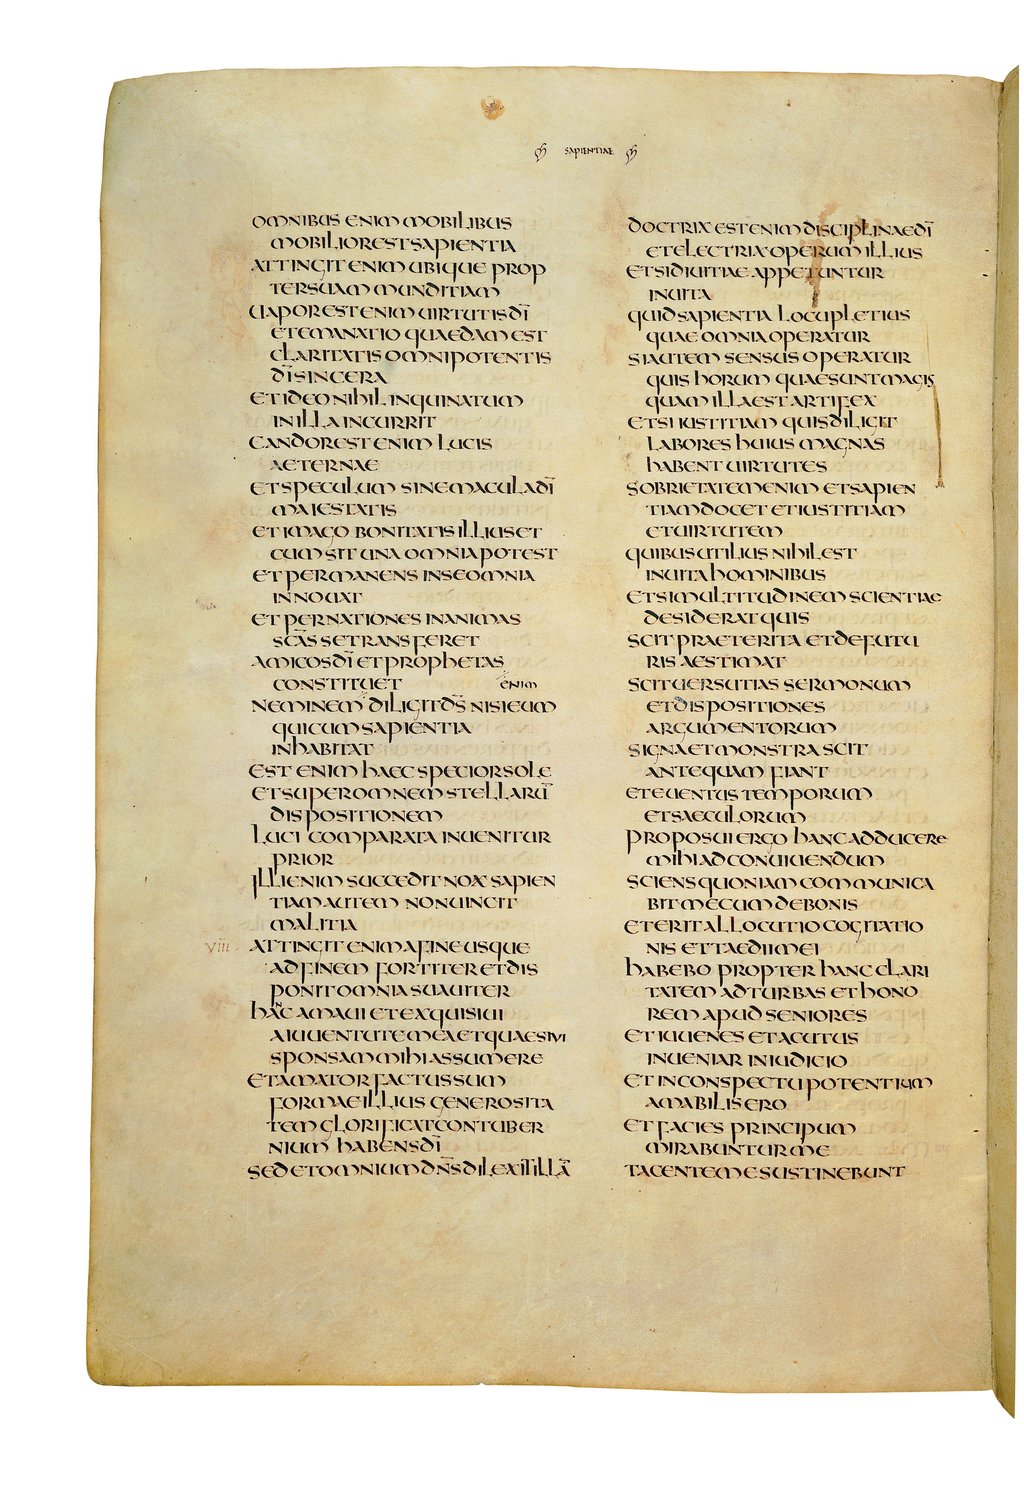 SAPIENTIAE
OMNIBUS ENIM MOBILIBUS
MOBILIOR EST SAPIENTIA
ATTINGIT ENIM UBIQUE PROP
TER SUAM MUNDITIAM
UAPOR EST ENIM UIRTUTIS DĪ
ET EMANATIO QUAEDAM EST
CLARITATIS OMNIPOTENTIS
DĪ SINCERA
ET IDEO NIHIL INQUINATUM
IN ILLA INCURRIT
CANDOR EST ENIM LUCIS
AETERNAE
ET SPECULUM SINE MACULA DĪ
MAIESTATIS
ET IMAGO BONITATIS ILLIUS ET
CUM SIT UNA OMNIA POTEST
ET PERMANENS IN SE OMNIA
INNOUAT
ET PER NATIONES IN ANIMAS
SCĀS SE TRANSFERET
AMICOS DĪ ET PROPHETAS
CONSTITUET
ENIM
NEMINEM DILIGIT DS̄ NISI EUM
QUI CUM SAPIENTIA
INHABITAT
EST ENIM HAEC SPECIOR SOLE
ET SUPER OMNEM STELLARŪ
DISPOSITIONEM
LUCI COMPARATA INUENITUR
PRIOR
ILLI ENIM SUCCEDIT NOX SAPIEN
TIAM AUTEM NON UINCIT
MALITIA
VIII ATTINGIT ENIM A FINE USQUE
AD FINEM FORTITER ET DIS
PONIT OMNIA SUAUITER
HANC AMAUI ET EXQUISIUI
A IUUENTUTE MEA ET QUAESIVI
SPONSAM MIHI ASSUMERE
ET AMATOR FACTUS SUM
FORMAE ILLIUS GENEROSITA
TEM GLORIFICAT CONTUBER
NIUM HABENS DĪ
SED ET OMNIUM DN̄S DILEXIT ILLĀ
DOCTRIX EST ENIM DISCIPLINAE DĪ
ET ELECTRIX OPERUM ILLIUS
ET SI DIUITIAE APPETUNTUR
IN UITA
QUID SAPIENTIA LOCUPLETIUS
QUAE OMNIA OPERATUR
SI AUTEM SENSUS OPERATUR
QUIS HORUM QUAE SUNT MAGIS
QUAM ILLA EST ARTIFEX
ET SI IUSTITIAM QUIS DILIGIT
LABORES HUIUS MAGNAS
HABENT UIRTUTES
SOBRIETATEM ENIM ET SAPIEN
TIAM DOCET ET IUSTITIAM
ET UIRTUTEM
QUIBUS UTILIUS NIHIL EST
IN UITA HOMINIBUS
ET SI MULTITUDINEM SCIENTIAE
DESIDERAT QUIS
SCIT PRAETERITA ET DE FUTU
RIS AESTIMAT
SCIT UERSUTIAS SERMONUM
ET DISPOSITIONES
ARGUMENTORUM
SIGNA ET MONSTRA SCIT
ANTEQUAM FIANT
ET EUENTUS TEMPORUM
ET SAECULORUM
PROPOSUI ERGO HANC ADDUCERE
MIHI AD CONUIUENDUM
SCIENS QUONIAM COMMUNICA
BIT MECUM DE BONIS
ET ERIT ALLOCUTIO COGITATIO
NIS ET TAEDII MEI
HABEBO PROPTER HANC CLARI
TATEM AD TURBAS ET HONO
REM APUD SENIORES
ET IUUENES ET ACUTUS
INUENIAR IN IUDICIO
ET IN CONSPECTU POTENTIUM
AMABILIS ERO
ET FACIES PRINCIPUM
MIRABUNTUR ME
TACENTEM E SUSTINEBUNT